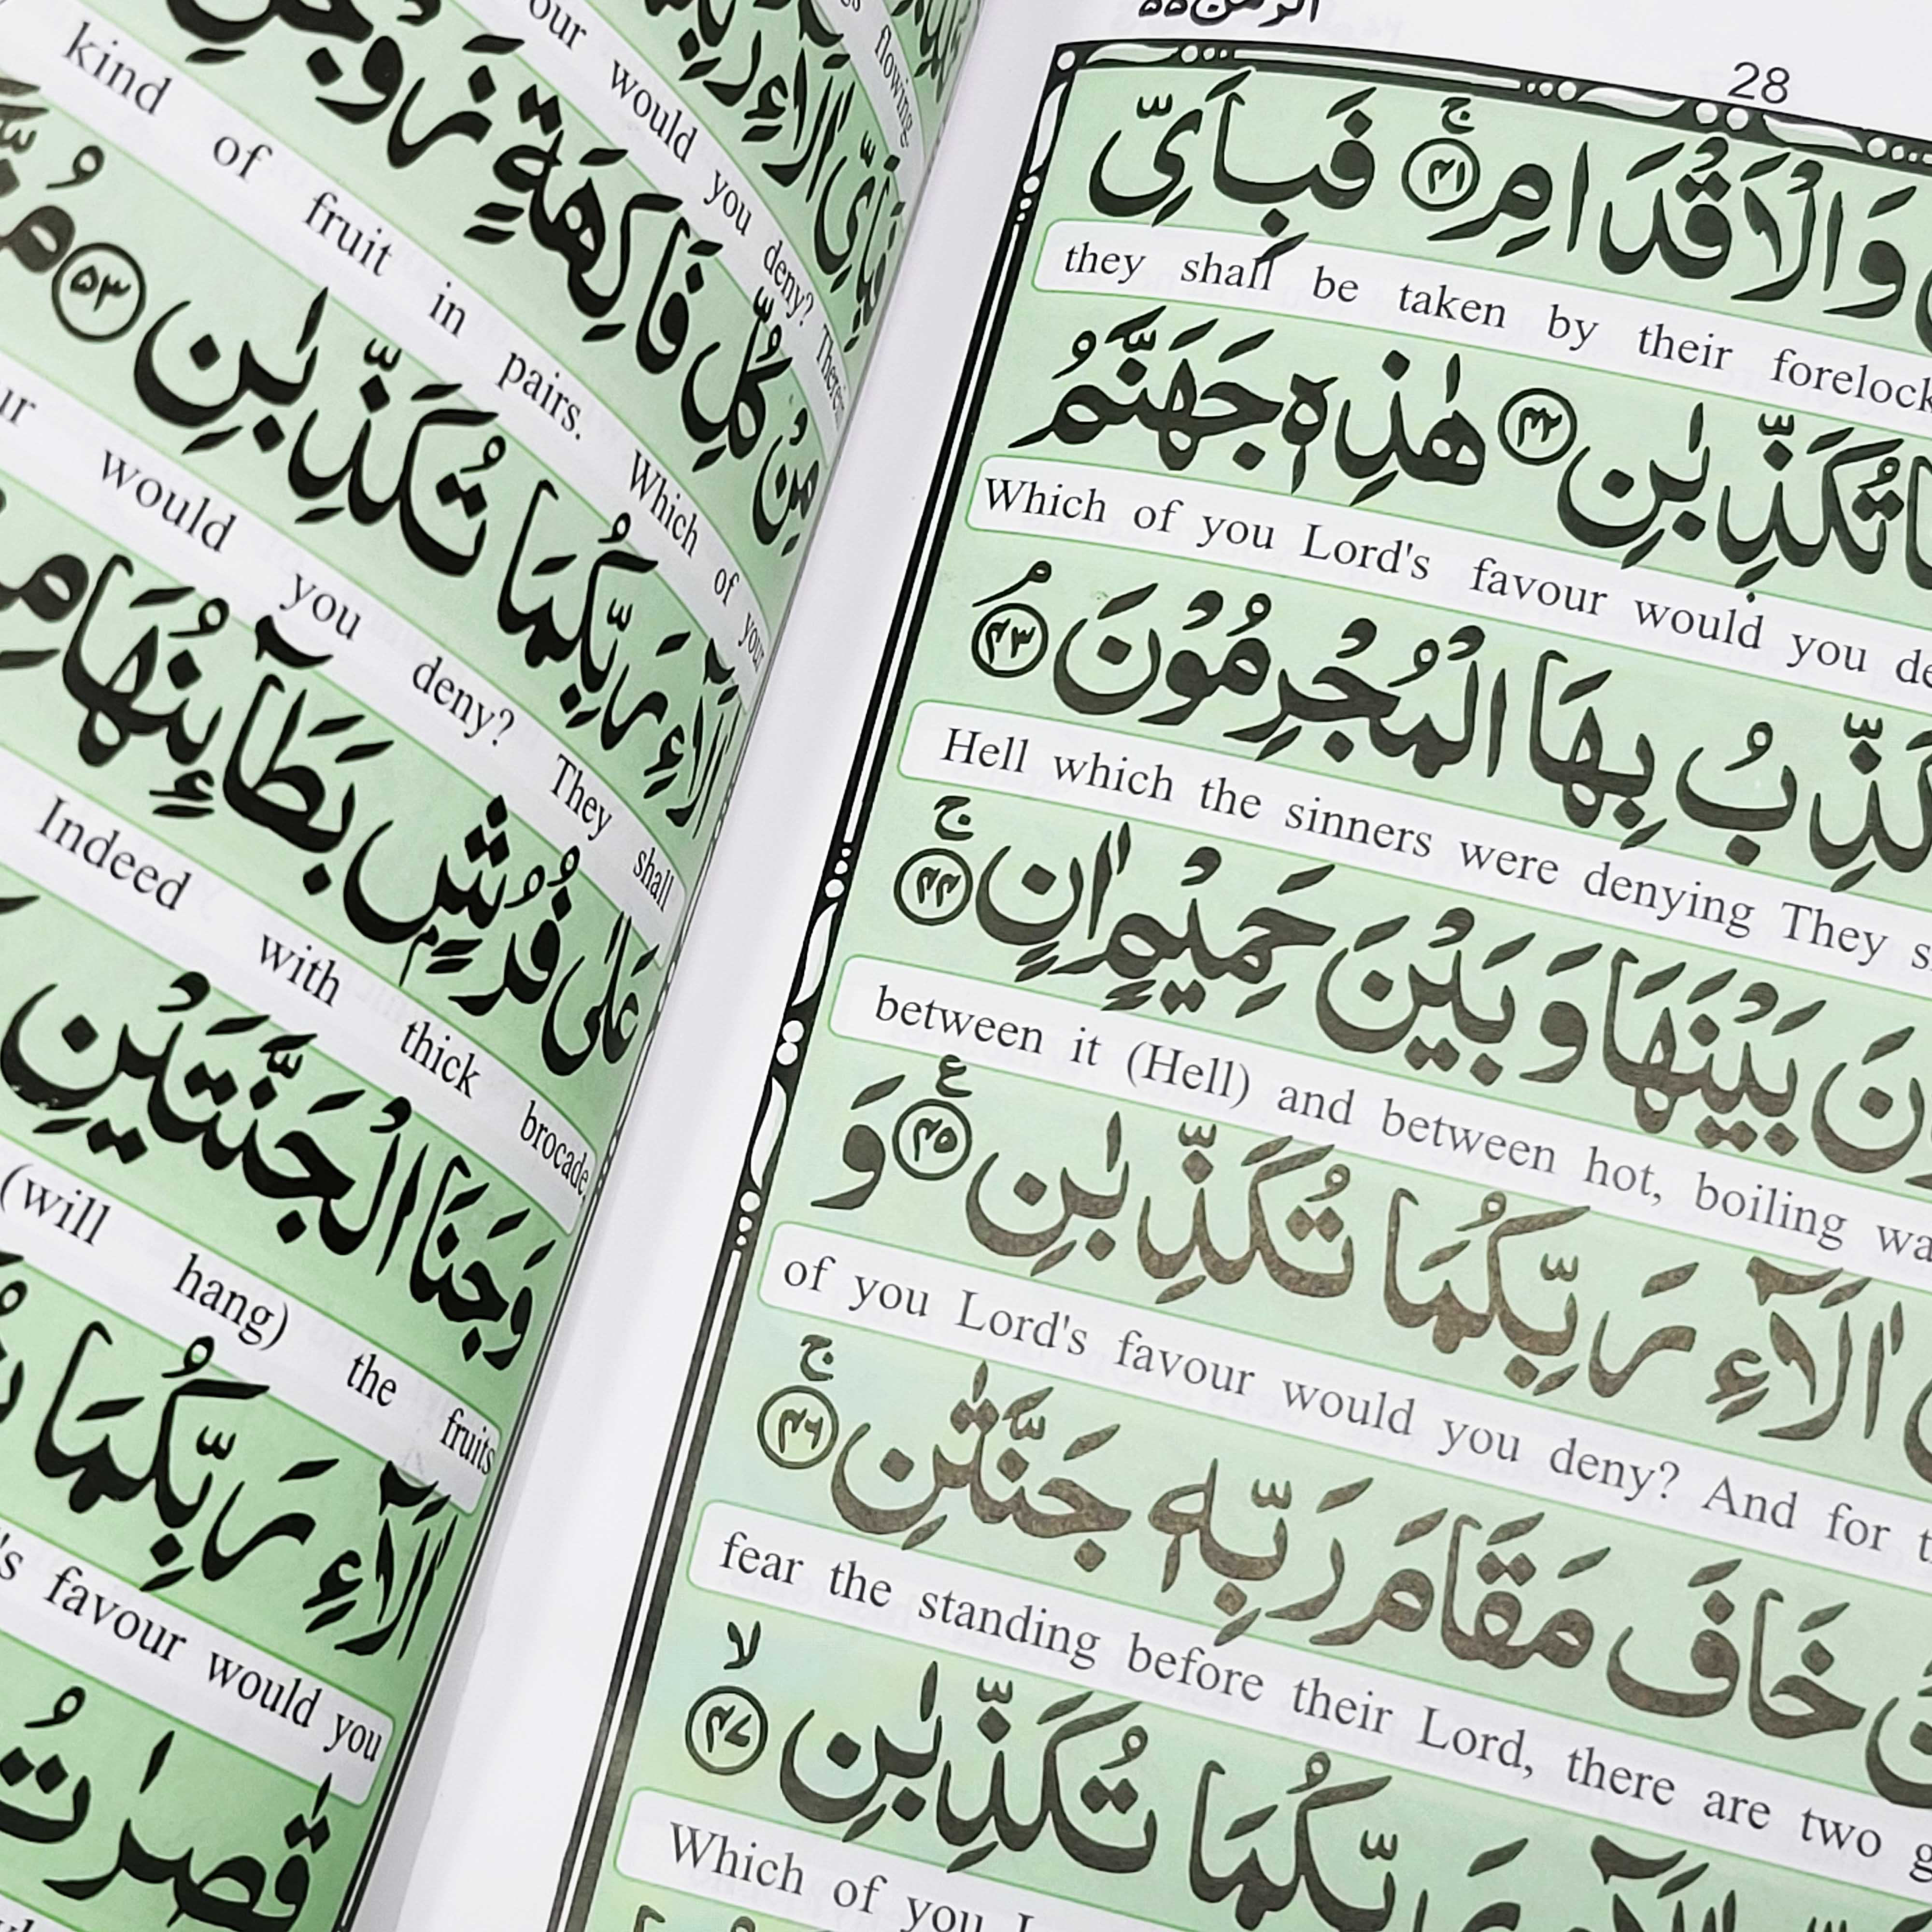 28
وَالْاَقْدَامِ ۴۱ فَبِاَیِّ
they shall be taken by their
تُكَذِّبٰنِ ۴۲ هٰذِهٖ جَهَنَّمُ
Which of you Lord's favour would you
بِهَا الْمُجْرِمُوْنَ ۴۳
Hell which the sinners were denying They
بَيْنَهَا وَبَيْنَ حَمِيْمٍ اٰنٍ ۴۴
between it (Hell) and between hot, boiling
اٰلَآءِ رَبِّكُمَا تُكَذِّبٰنِ ۴۵ وَ
of you Lord's favour would you deny? And for
خَافَ مَقَامَ رَبِّهٖ جَنَّتٰنِ ۴۶
fear the standing before their Lord, there are two
رَبِّكُمَا تُكَذِّبٰنِ ۴۷
Which of you
flowing.
فَبِاَیِّ اٰلَآءِ
would you deny?
مِنْ كُلِّ فَاكِهَةٍ
kind of fruit in pairs. Which of your
اٰلَآءِ رَبِّكُمَا تُكَذِّبٰنِ ۵۳
would you deny? They shall
عَلٰی فُرُشٍۭ بَطَآىِٕنُهَا
Indeed with thick brocade,
وَجَنَا الْجَنَّتَيْنِ
(will hang) the fruits
اٰلَآءِ رَبِّكُمَا
favour would you
قٰصِرٰتُ